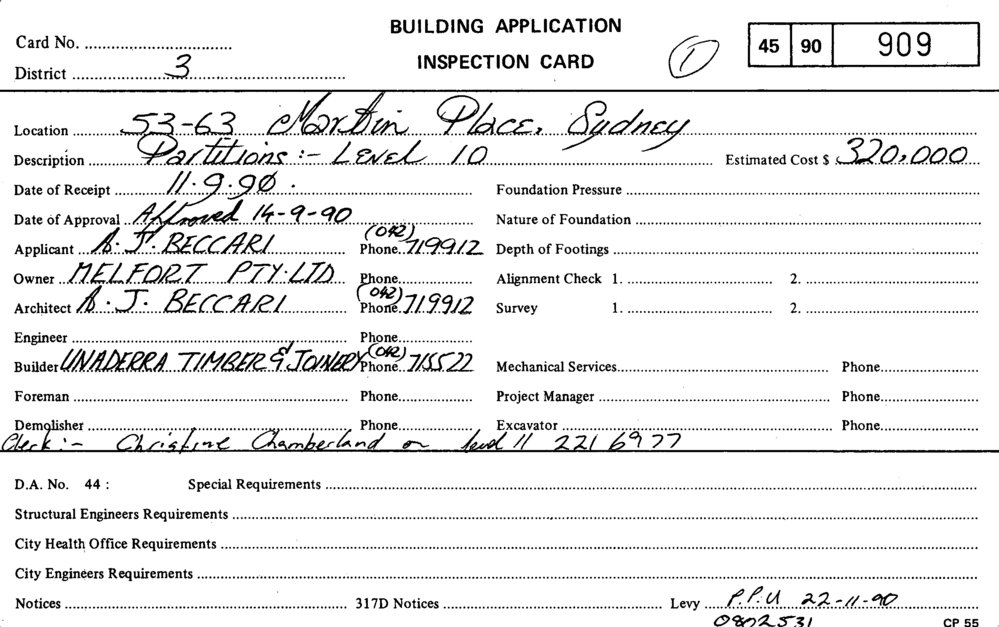 BUILDING APPLICATION
INSPECTION CARD
Card No.
1
45 90 909
District 3
Location 53-63 Martin Place, Sydney
Description Partitions :- LEVEL 10 Estimated Cost $ 320,000
Date of Receipt 11.9.90. Foundation Pressure
Date of Approval Approved 14-9-90 Nature of Foundation
Applicant A. J. BECCARI Phone (042) 719912 Depth of Footings
Owner MELFORT PTY. LTD Phone Alignment Check 1. 2.
Architect A. J. BECCARI Phone (042) 719912 Survey 1. 2.
Engineer Phone
Builder UNADERRA TIMBER & JOINERY Phone (042) 715522 Mechanical Services Phone
Foreman Phone Project Manager Phone
Demolisher Phone Excavator Phone
Clerk :- Christine Chamberland on level 11 221 6977
D.A. No. 44 : Special Requirements
Structural Engineers Requirements
City Health Office Requirements
City Engineers Requirements
Notices 317D Notices Levy P.P.U 22-11-90
0802531
CP 55